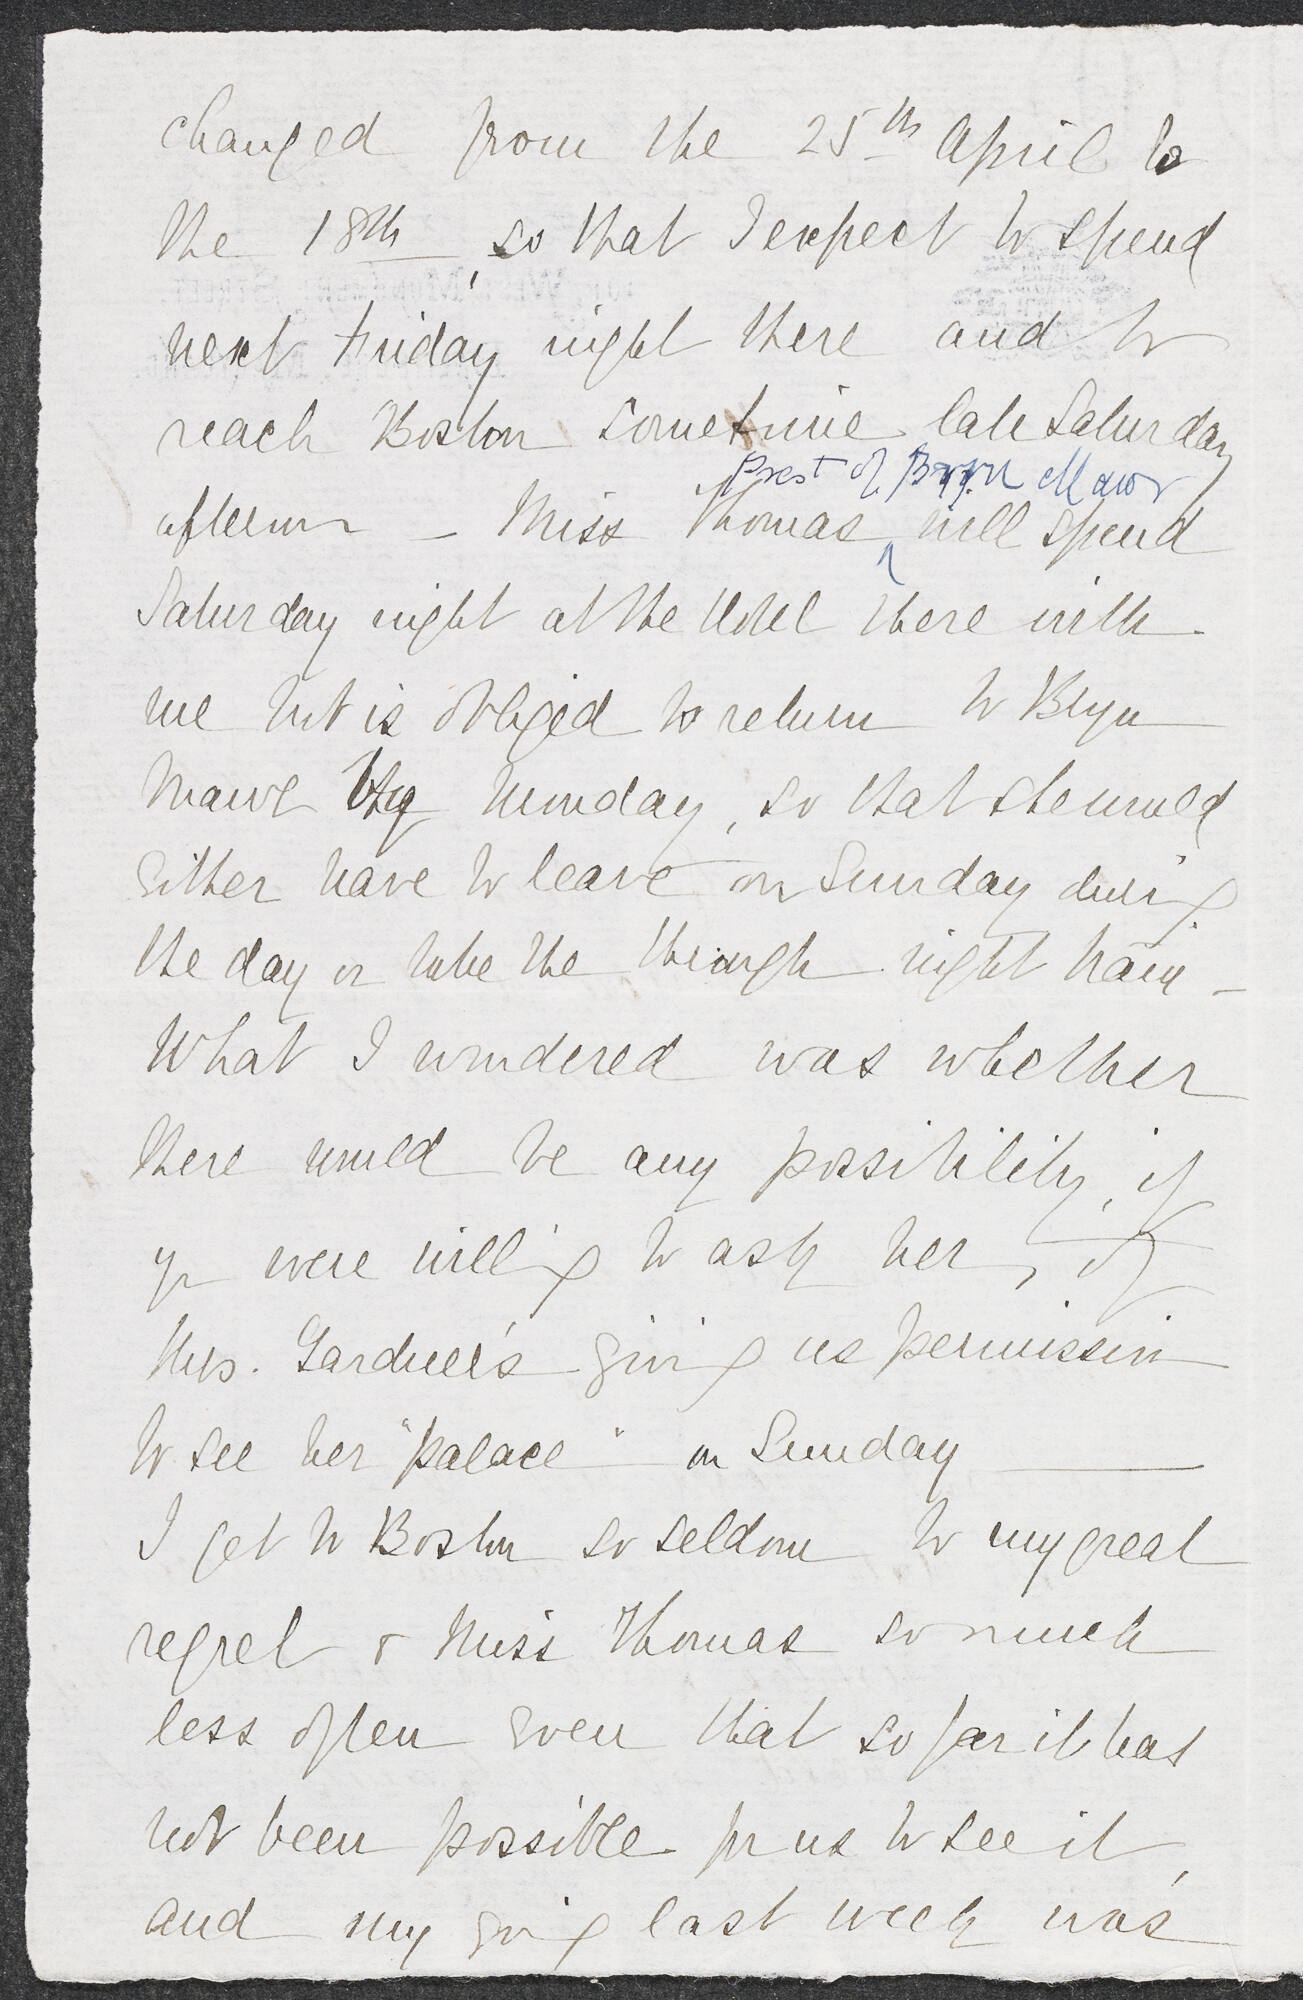 changed from the 25th April to
the 18th, so that I expect to spend
next Friday night there and to
reach Boston sometime late Saturday
Prest of Bryn Mawr
afternn – Miss Thomas ^ will spend
Saturday night at the Hotel there with
me but is obliged to return to Bryn
Mawr by Monday, so that she would
either have to leave on Sunday during
the day or take the through night train –
What I wondered was whether
there would be any possibility, if
yr were willing to ask her, of
Mrs. Gardner's giving us permission
to see her "palace" on Sunday ——
I get to Boston so seldom to my great
regret & Miss Thomas so much
less often even that so far it has
not been possible for us to see it,
and my going last week was